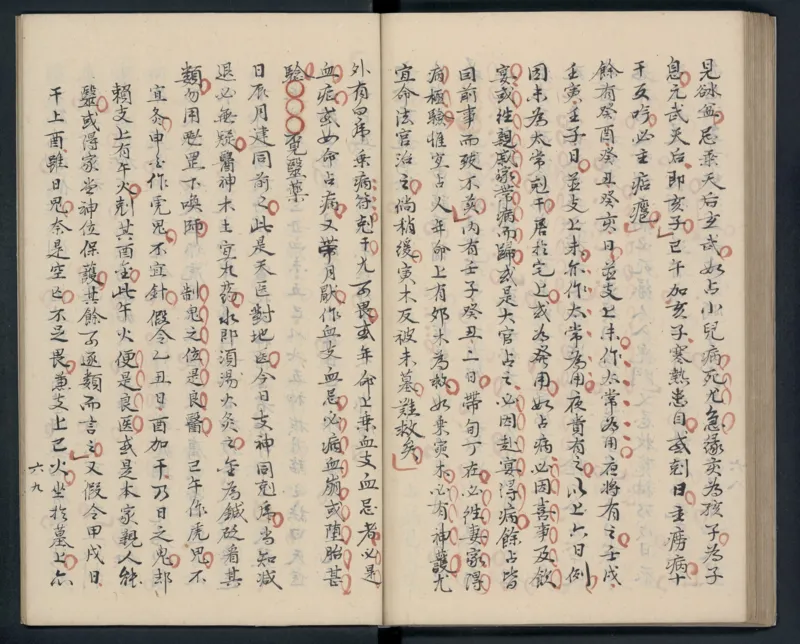 見欲盆忌乘天后玄武如占小兒病死尤急緣亥為孩子為子
息元武天后即亥子巳午加亥子寒熱患目或剋日主癆病十
干反吟必主痁瘧
餘有癸酉癸丑癸亥日並支上未作太常為用夜將有之壬戌
壬寅壬子日並支上未亦作太常為用夜貴有之以上六日例
因未為太常剋干居於宅上或為發用如占病必因喜事及飲
宴或往親戚家帶病而歸或是大官占之必因赴宴得病餘占皆
因前事而致不美內有壬子癸丑二日帶旬丁在必往妻家得
病極驗惟空占人年命上有卯木為救如乘寅木必有神護尤
宜命法官治之倘稍緩寅木反被未墓難救矣
外有白虎乘病符剋干尤可畏或年命上乘血支血忌者必是
血症或如命占病又帶月厭作血支血忌必病血崩或墮胎甚
驗○○○電醫藥
日辰月建同前之此是天医對地医今日支神同剋虎當知減
退必無疑醫神木土宜丸药水即須湯火灸之金為鍼砭看其
類勿用懇置下喚師 制鬼之位是良醫 巳午作虎鬼不
宜灸申金作虎鬼不宜針假令乙丑日酉加干乃日之鬼却
賴支上有午火剋其酉金此午火便是良医或是本家親人能
醫或得家堂神位保護其餘可逐類而言之又假令甲戌日
干上酉雖日鬼奈是空亡不足畏兼支上巳火坐於墓上亦
六九